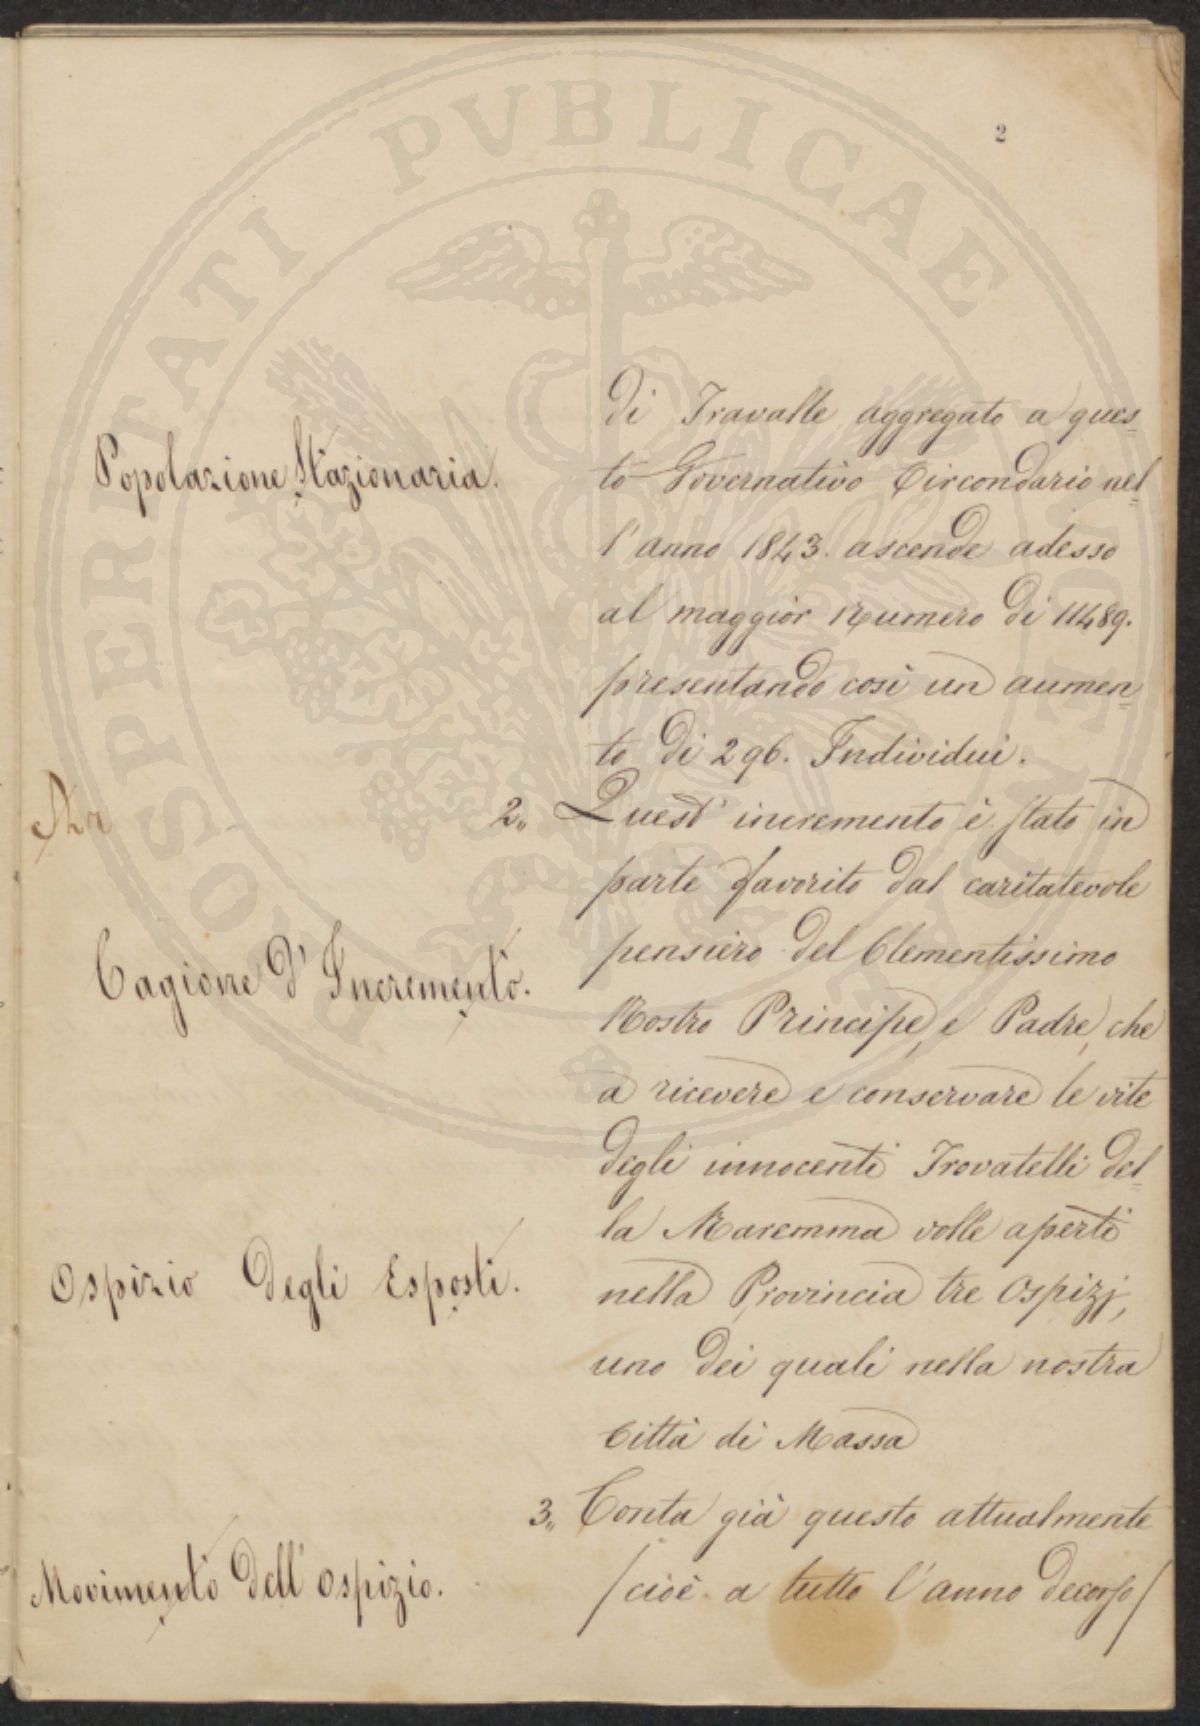 2
di Travalle aggregato a ques=
Popolazione Stazionaria.
to Governativo Circondario nel=
l'anno 1843. ascende adesso
al maggior Numero di 11489.
presentando così un aumen=
to di 296. Individui.
2,, Quest' incremento è stato in
parte favorito dal caritatevole
Cagione d'Incremento.
pensiero del Clementissimo
Nostro Principe, e Padre, che
a ricevere e conservare le vite
degli innocenti Trovatelli del=
la Maremma volle aperti
Ospizio degli Esposti.
nella Provincia tre Ospizj,
uno dei quali nella nostra
Città di Massa
3,, Conta già questo attualmente
Movimento dell'Ospizio.
/cioè a tutto l'anno decorso/
PROSPERITATI PVBLICAE